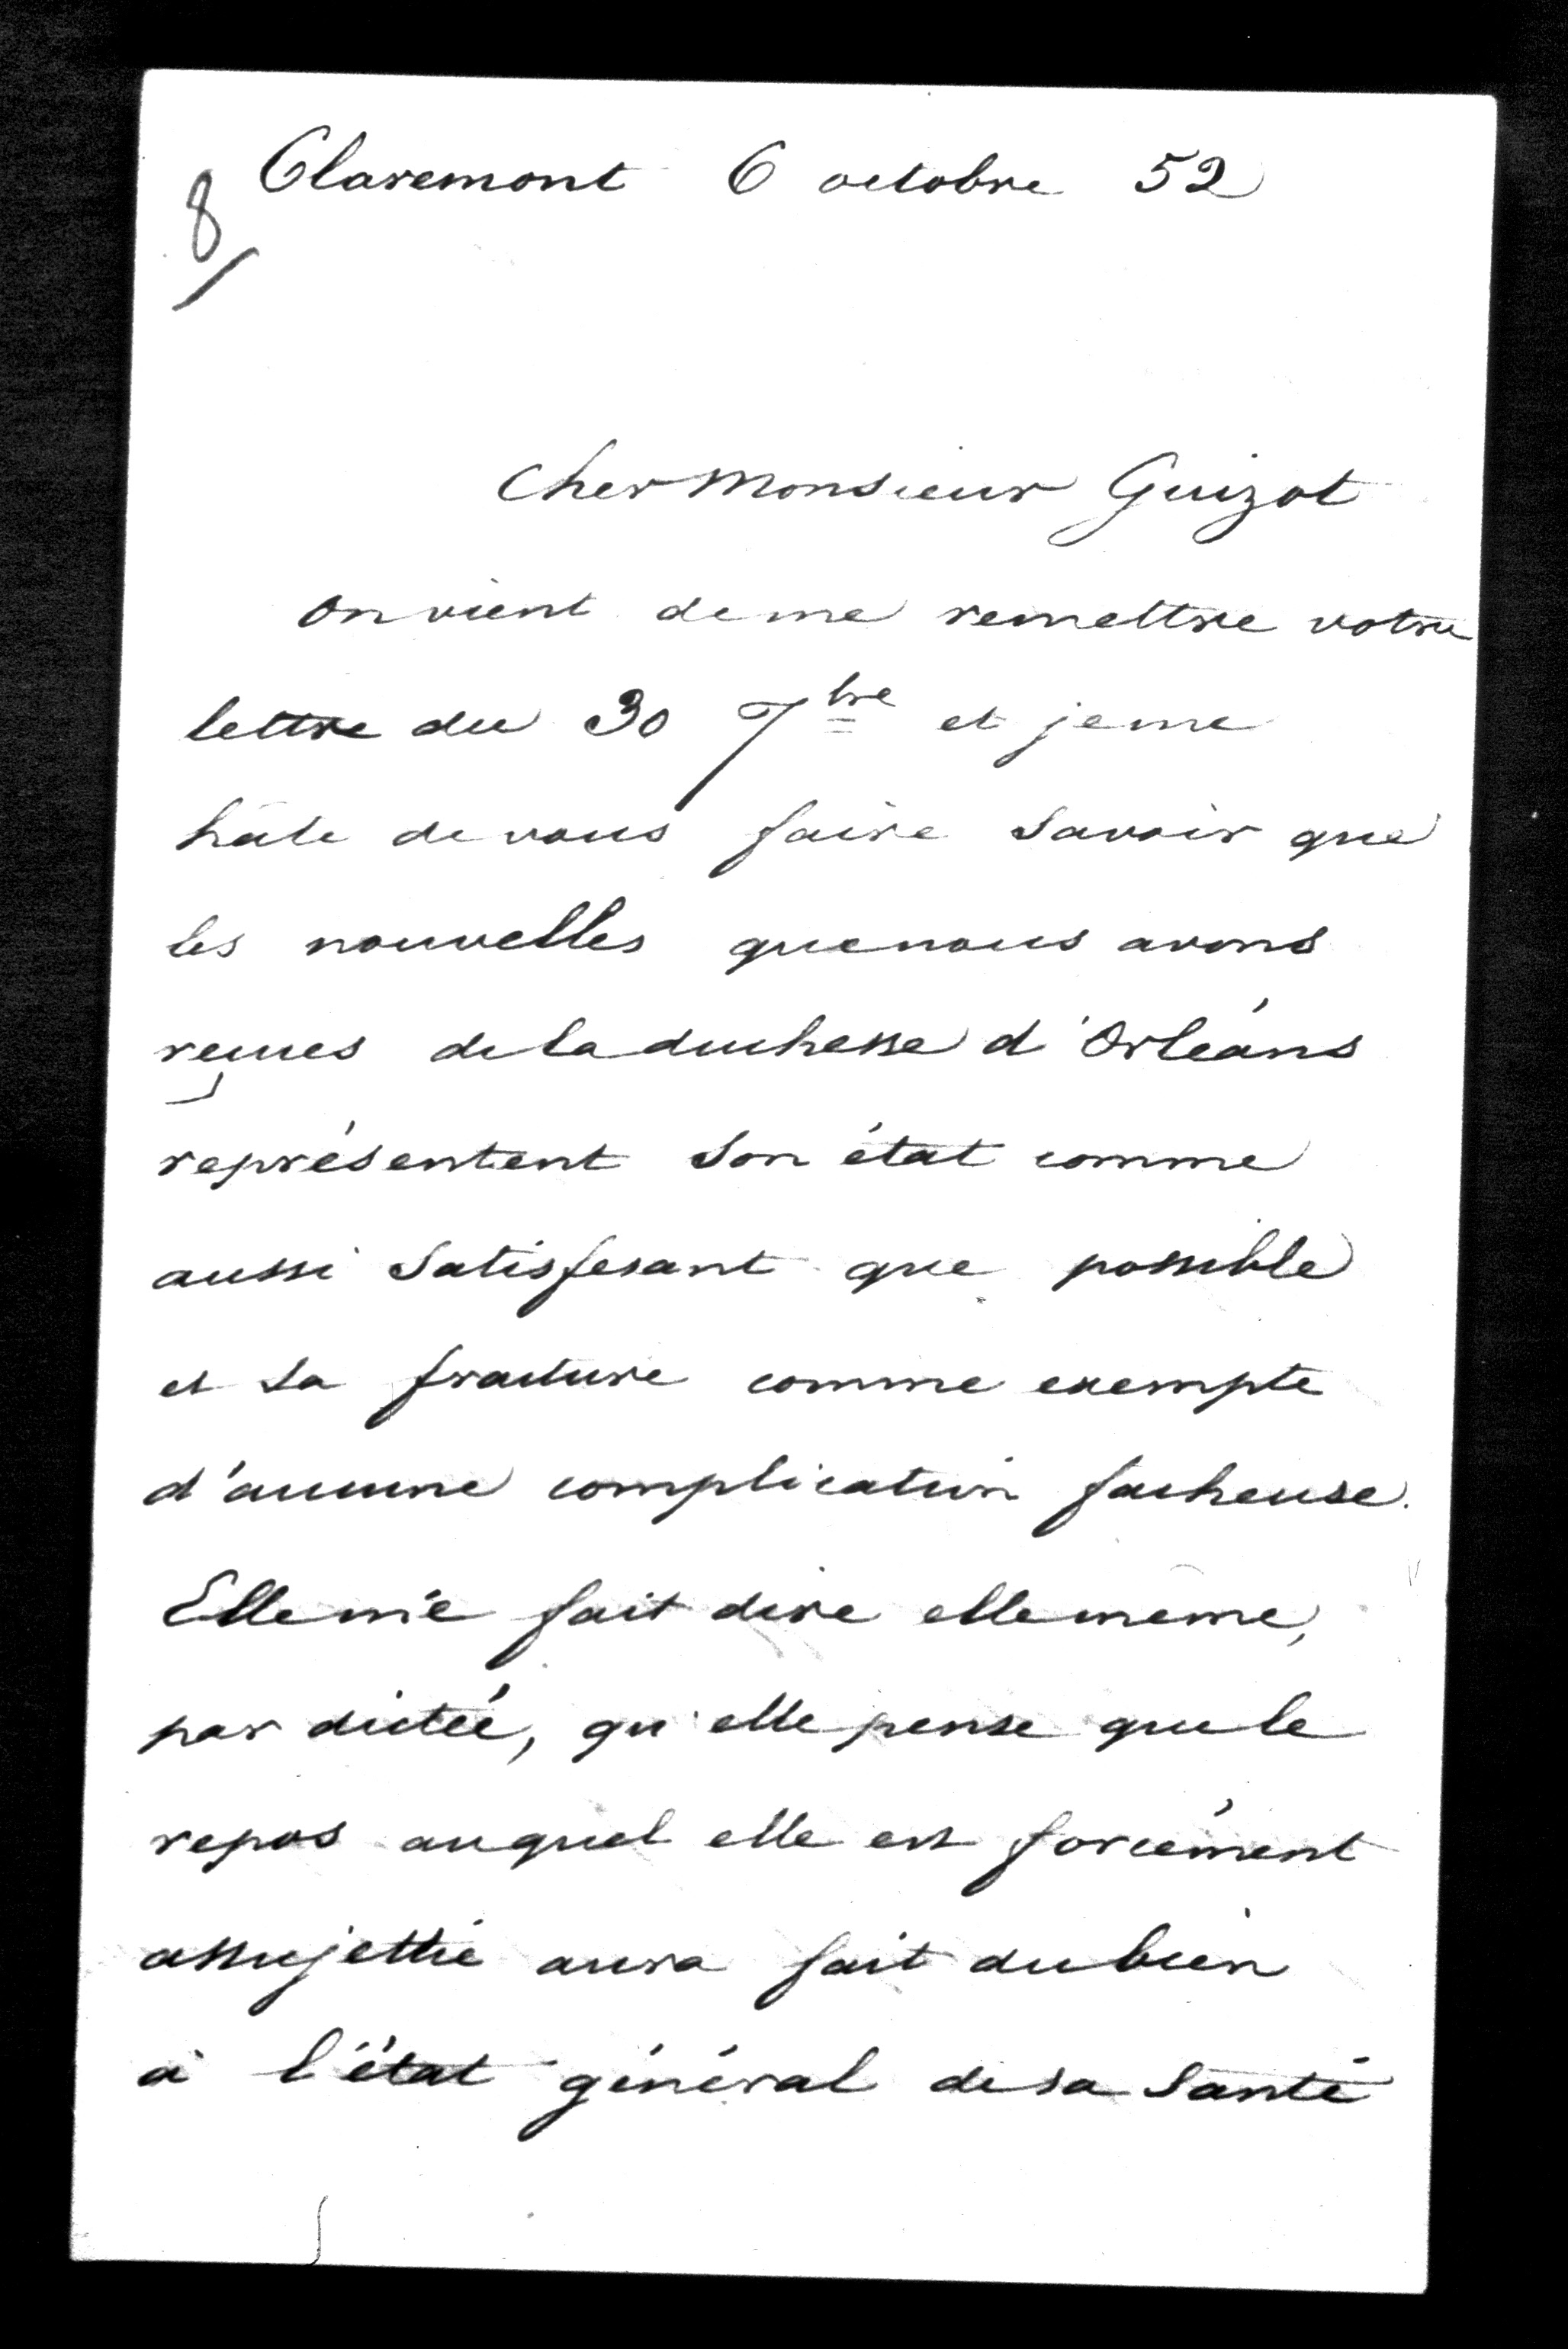 Claremont 6 octobre 52
8
Cher Monsieur Guizot
On vient de me remettre votre
lettre du 30 7bre et je me
hâte de vous faire savoir que
les nouvelles que nous avons
reçues de la duchesse d'Orléans
représentent son état comme
aussi satisfesant que possible
et sa fracture comme exempte
d'aucune complication facheuse.
Elle me fait dire elle même,
par dictée, qu'elle pense que le
repos auquel elle est forcément
assujettie aura fait du bien
à l'état général de sa santé